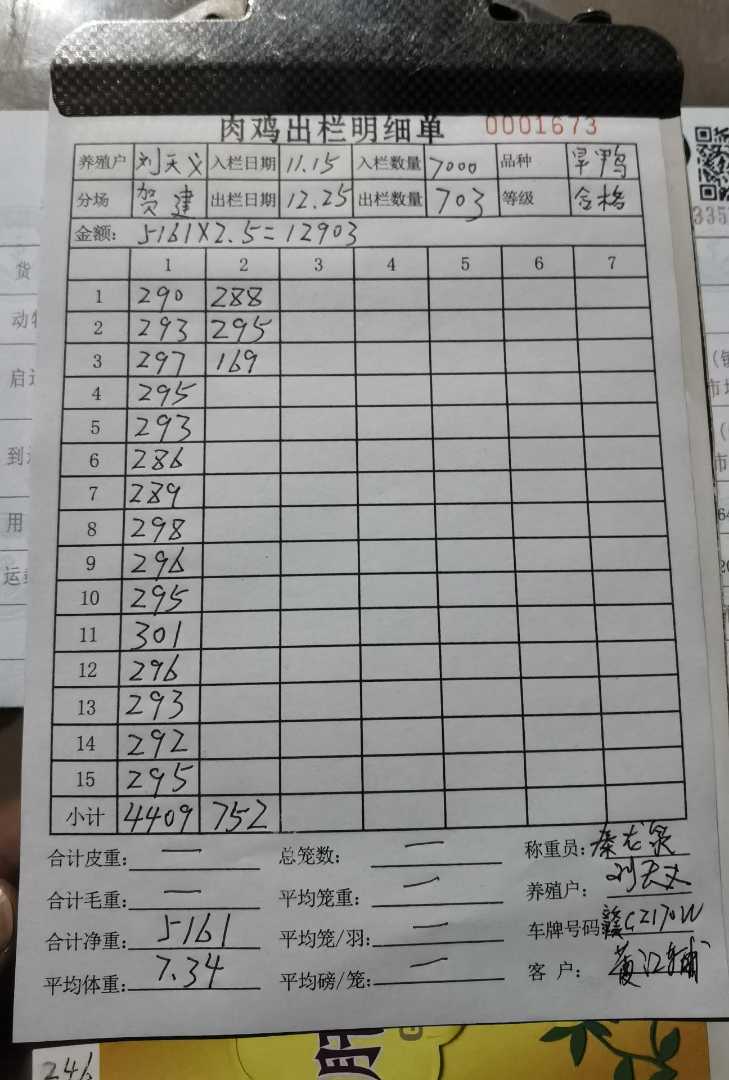 肉鸡出栏明细单 0001673
养殖户 刘天义 入栏日期 11.15 入栏数量 7000 品种 旱鸭
分场 贺建 出栏日期 12.25 出栏数量 703 等级 合格
金额: 5161×2.5=12903
1 2 3 4 5 6 7
1 290 288
2 293 295
3 297 169
4 295
5 293
6 286
7 289
8 298
9 296
10 295
11 301
12 296
13 293
14 292
15 295
小计 4409 752
合计皮重: — 总笼数: — 称重员: 秦龙泉
合计毛重: — 平均笼重: — 养殖户: 刘天义
合计净重: 5161 平均笼/羽: — 车牌号码 赣CZ170W
平均体重: 7.34 平均磅/笼: — 客户:
货
动物
启运
到
用
运
335
市
市
246